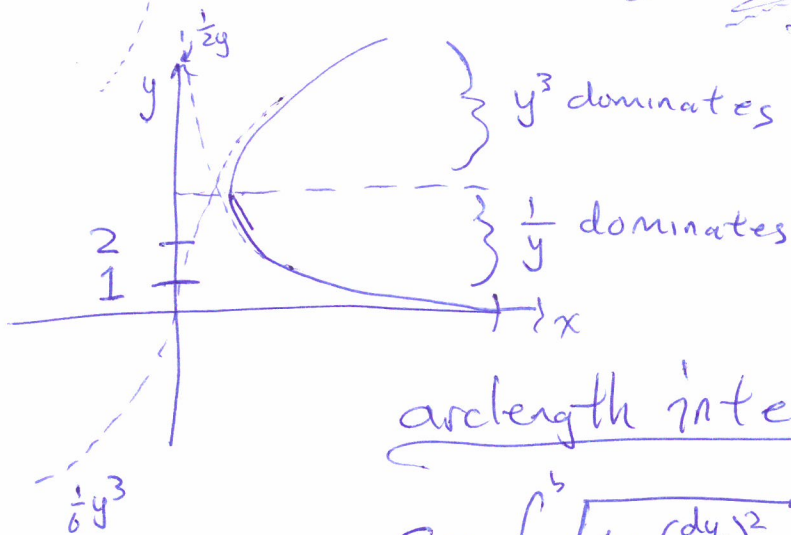 1/2y
y
y³ dominates
2
1/y dominates
1
x
arclength inte
1/6 y³